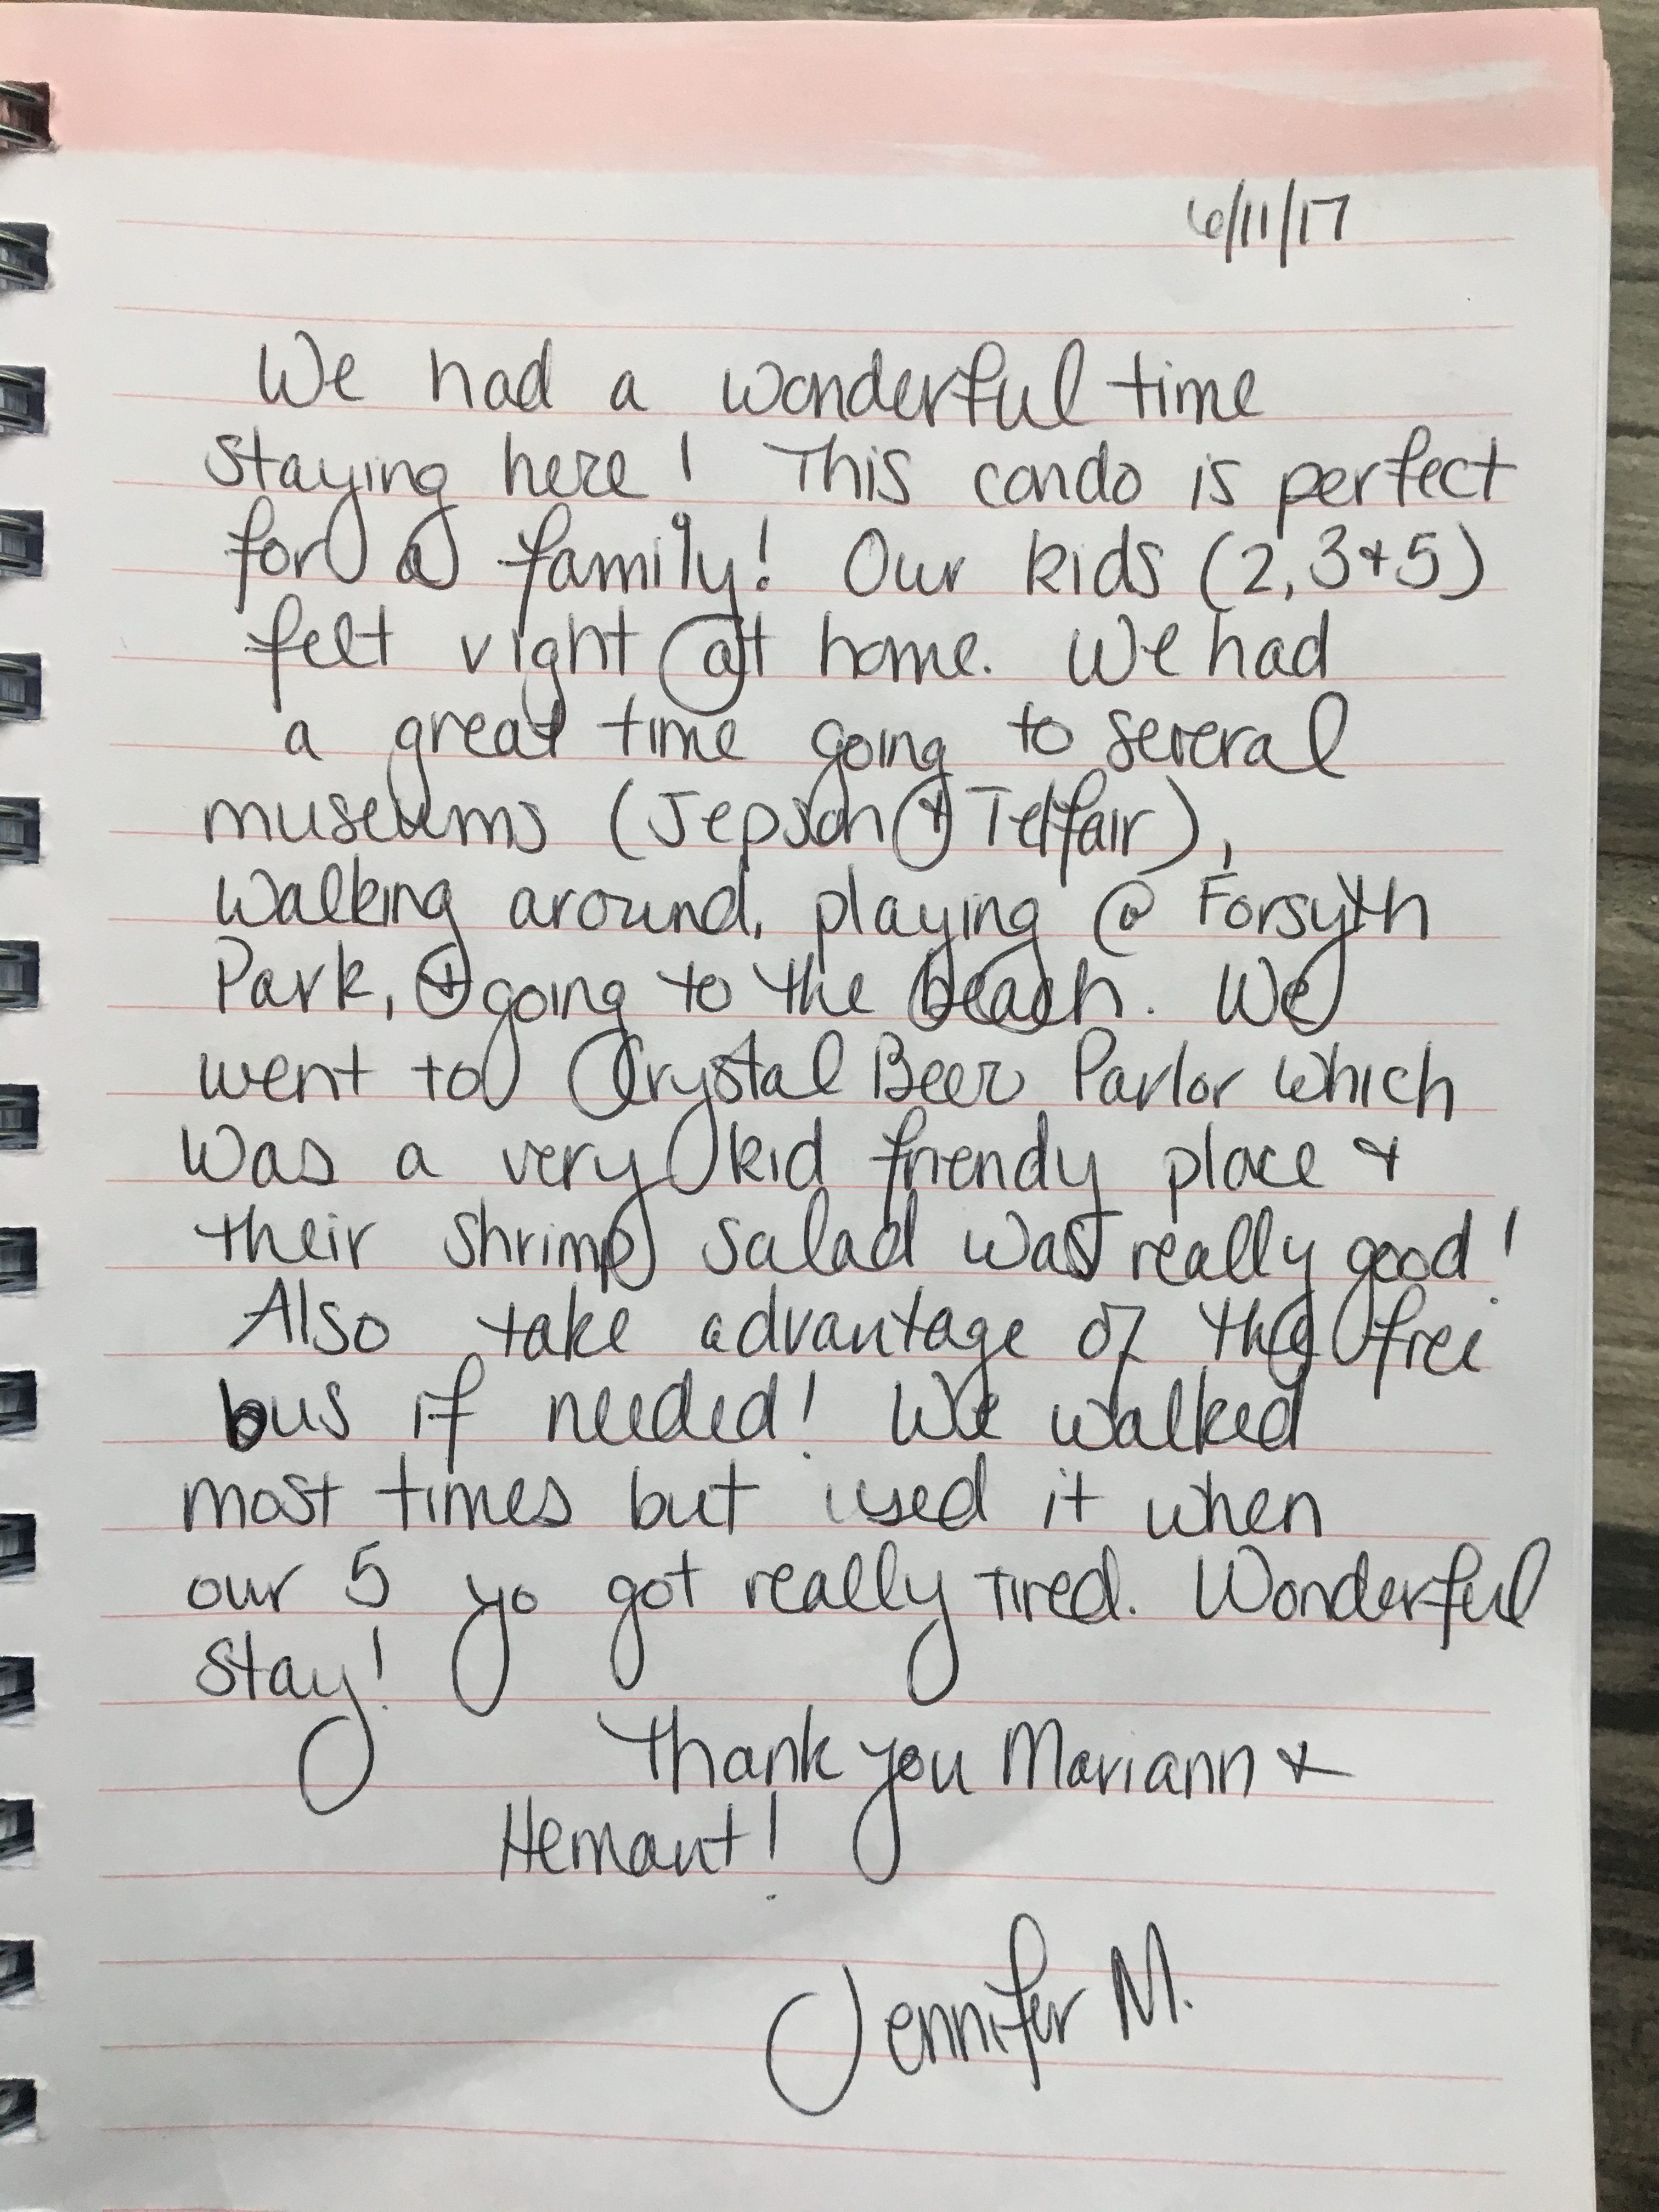 6/11/17
We had a wonderful time
staying here! This condo is perfect
for a family! Our kids (2, 3 + 5)
felt right at home. We had
a great time going to several
museums (Jepson + Telfair),
walking around, playing @ Forsyth
Park, + going to the beach. We
went to Crystal Beer Parlor which
was a very kid friendy place +
their shrimp salad was really good!
Also take advantage of the free
bus if needed! We walked
most times but used it when
our 5 yo got really tired. Wonderful
stay!
Thank you Mariann +
Hemant!
Jennifer M.